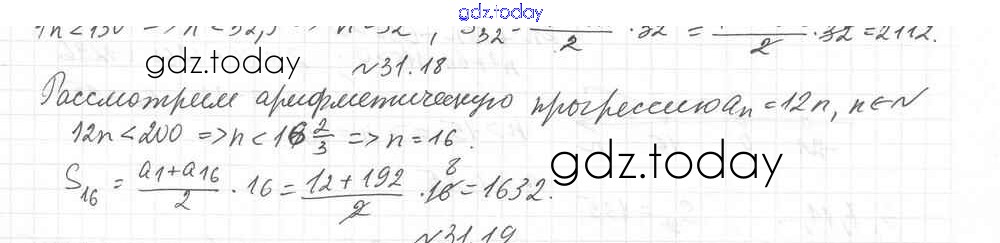 gdz.today
4n<130 => n<32,5 => n=32, S₃₂= /2 · 32 = /2 · 32=2112.
gdz.today
№31.18
Рассмотрим арифметическую прогрессию aₙ=12n, n∈N
12n<200 =>n<16 2/3 =>n=16.
gdz.today
S₁₆ = (a₁+a₁₆)/2 · 16 = (12+192)/2 · 16 8 =1632.
№31.19